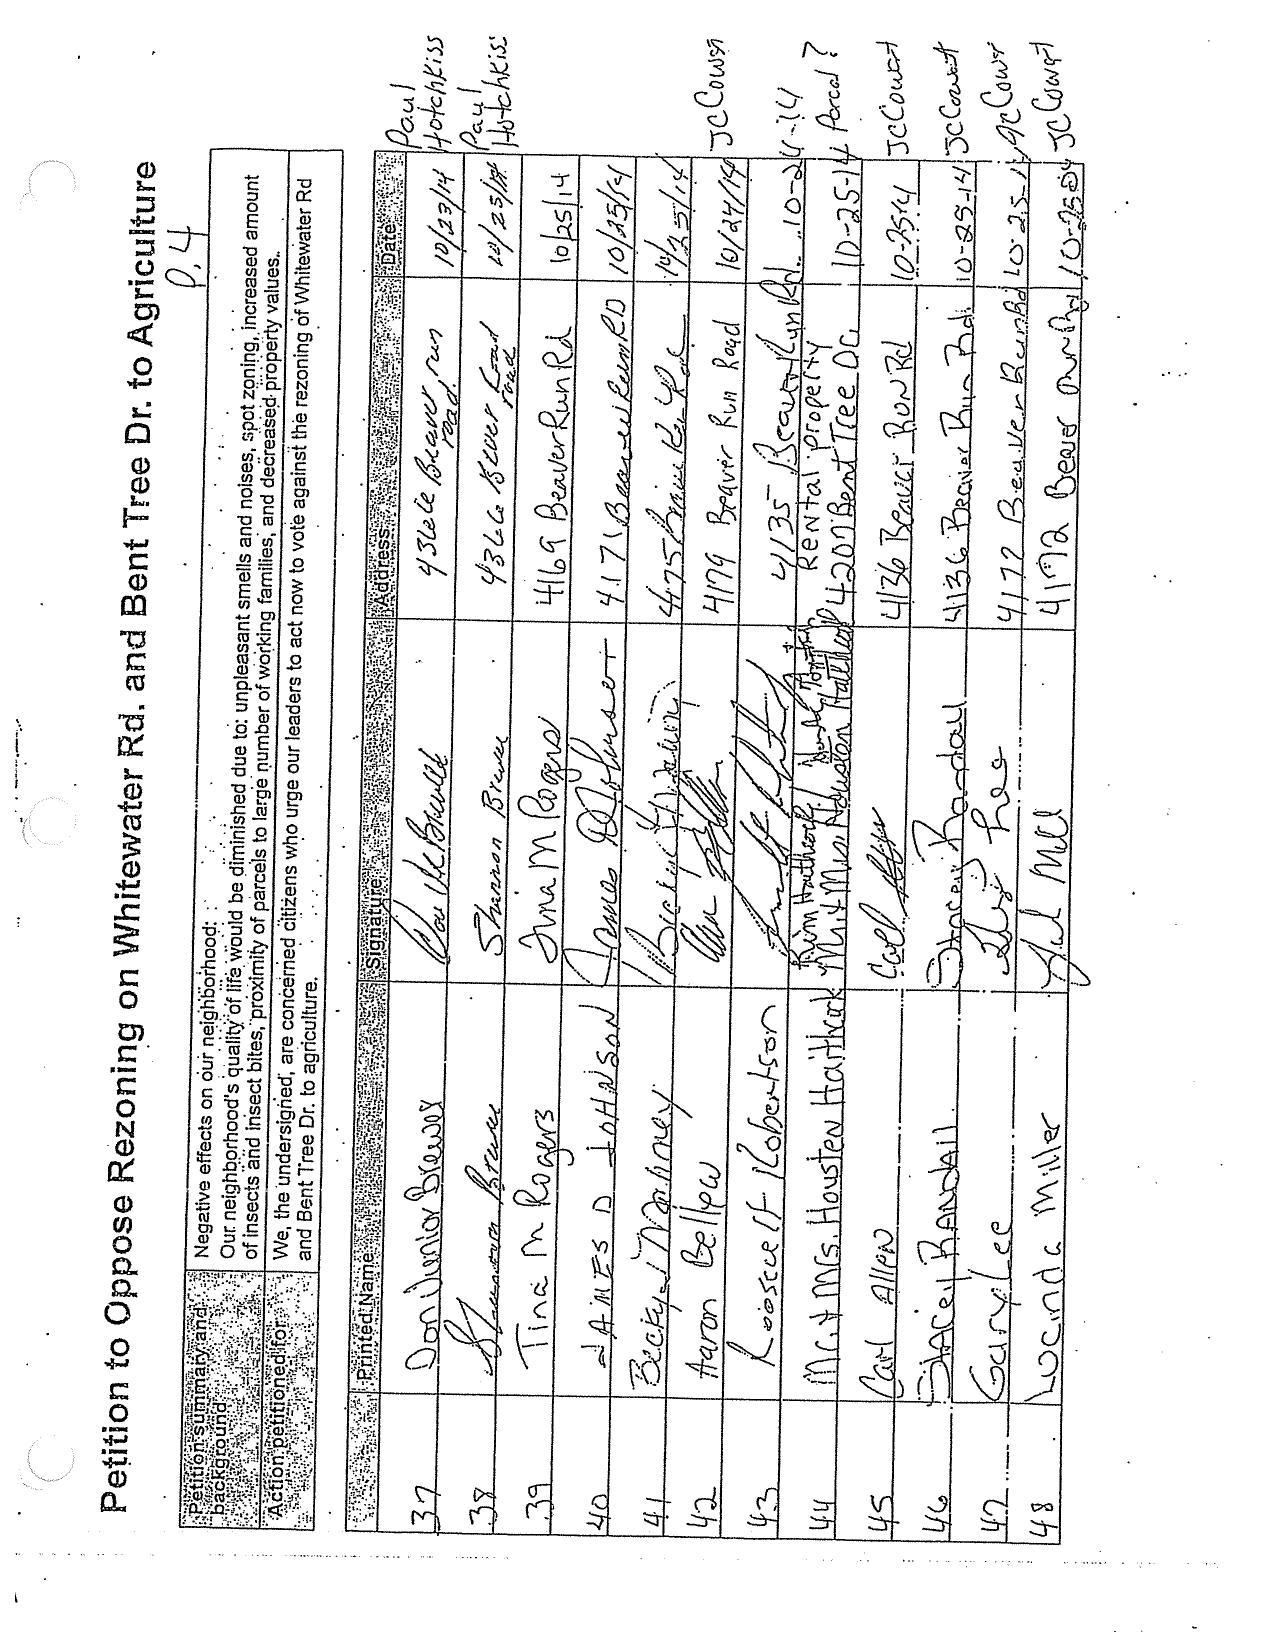 Petition to Oppose Rezoning on Whitewater Rd. and Bent Tree Dr. to Agriculture
p. 4
Petition summary and background
Negative effects on our neighborhood:
Our neighborhood's quality of life would be diminished due to: unpleasant smells and noises, spot zoning, increased amount
of insects and insect bites, proximity of parcels to large number of working families, and decreased property values.
Action petitioned for
We, the undersigned, are concerned citizens who urge our leaders to act now to vote against the rezoning of Whitewater Rd
and Bent Tree Dr. to agriculture.
Printed Name Signature Address Date
37 Don Junior Brewer 4366 Beaver run road 10/23/14 Paul Hotchkiss
38 Shannon Brewer Shannon Brewer 4366 road 10/25/14 Paul Hotchkiss
39 Tina M Rogers Tina M Rogers 4169 Beaver Run Rd 10/25/14
40 JAMES D JOHNSON James D Johnson 4171 Beaver Run RD 10/25/14
41 Becky J 4175 10/25/14
42 Aaron Bellew 4179 Beaver Run Road 10/24/14 JC Cowart
43 Roosevelt Robertson 4135 Beaver Run Rd. 10-24-14
44 Mr. & Mrs. Housten Haithcock Mr & Mrs Houston 4200 Bent Tree Dr 10-25-14 Parcel?
Rental property
45 Carl Allen Carl Allen 4136 Beaver RUN Rd 10-25-14 JC Cowart
46 STACEY RANDALL Stacey Randall 4136 Beaver Run Rd. 10-25-14 JC Cowart
47 Gary Lee Lee 4172 Beaver Run Rd 10-25-14 JC Cowart
48 Lucinda Miller 4172 Beaver Run JC Cowart